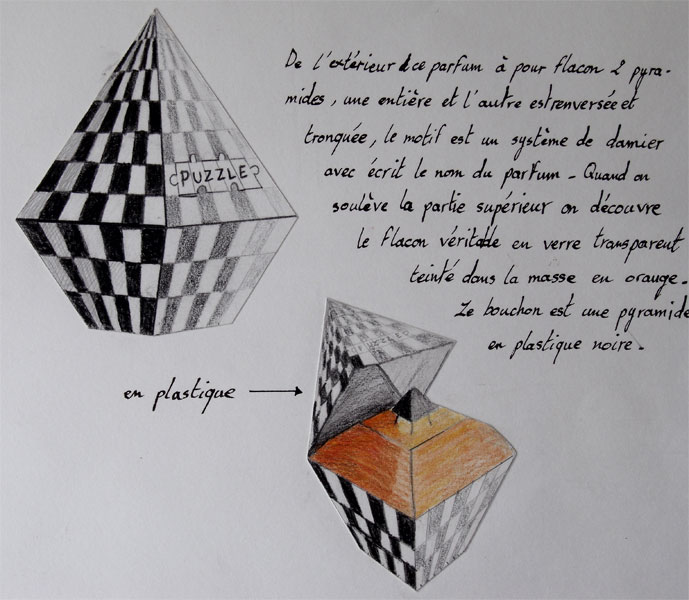 De l'extérieur ce parfum à pour flacon 2 pyra-
mides, une entière et l'autre est renversée et
tronquée, le motif est un système de damier
avec écrit le nom du parfum - Quand on
soulève la partie supérieur on découvre
le flacon véritable en verre transparent
teinté dans la masse en orange.
Le bouchon est une pyramide
en plastique noire.
PUZZLE
PUZZLE
en plastique